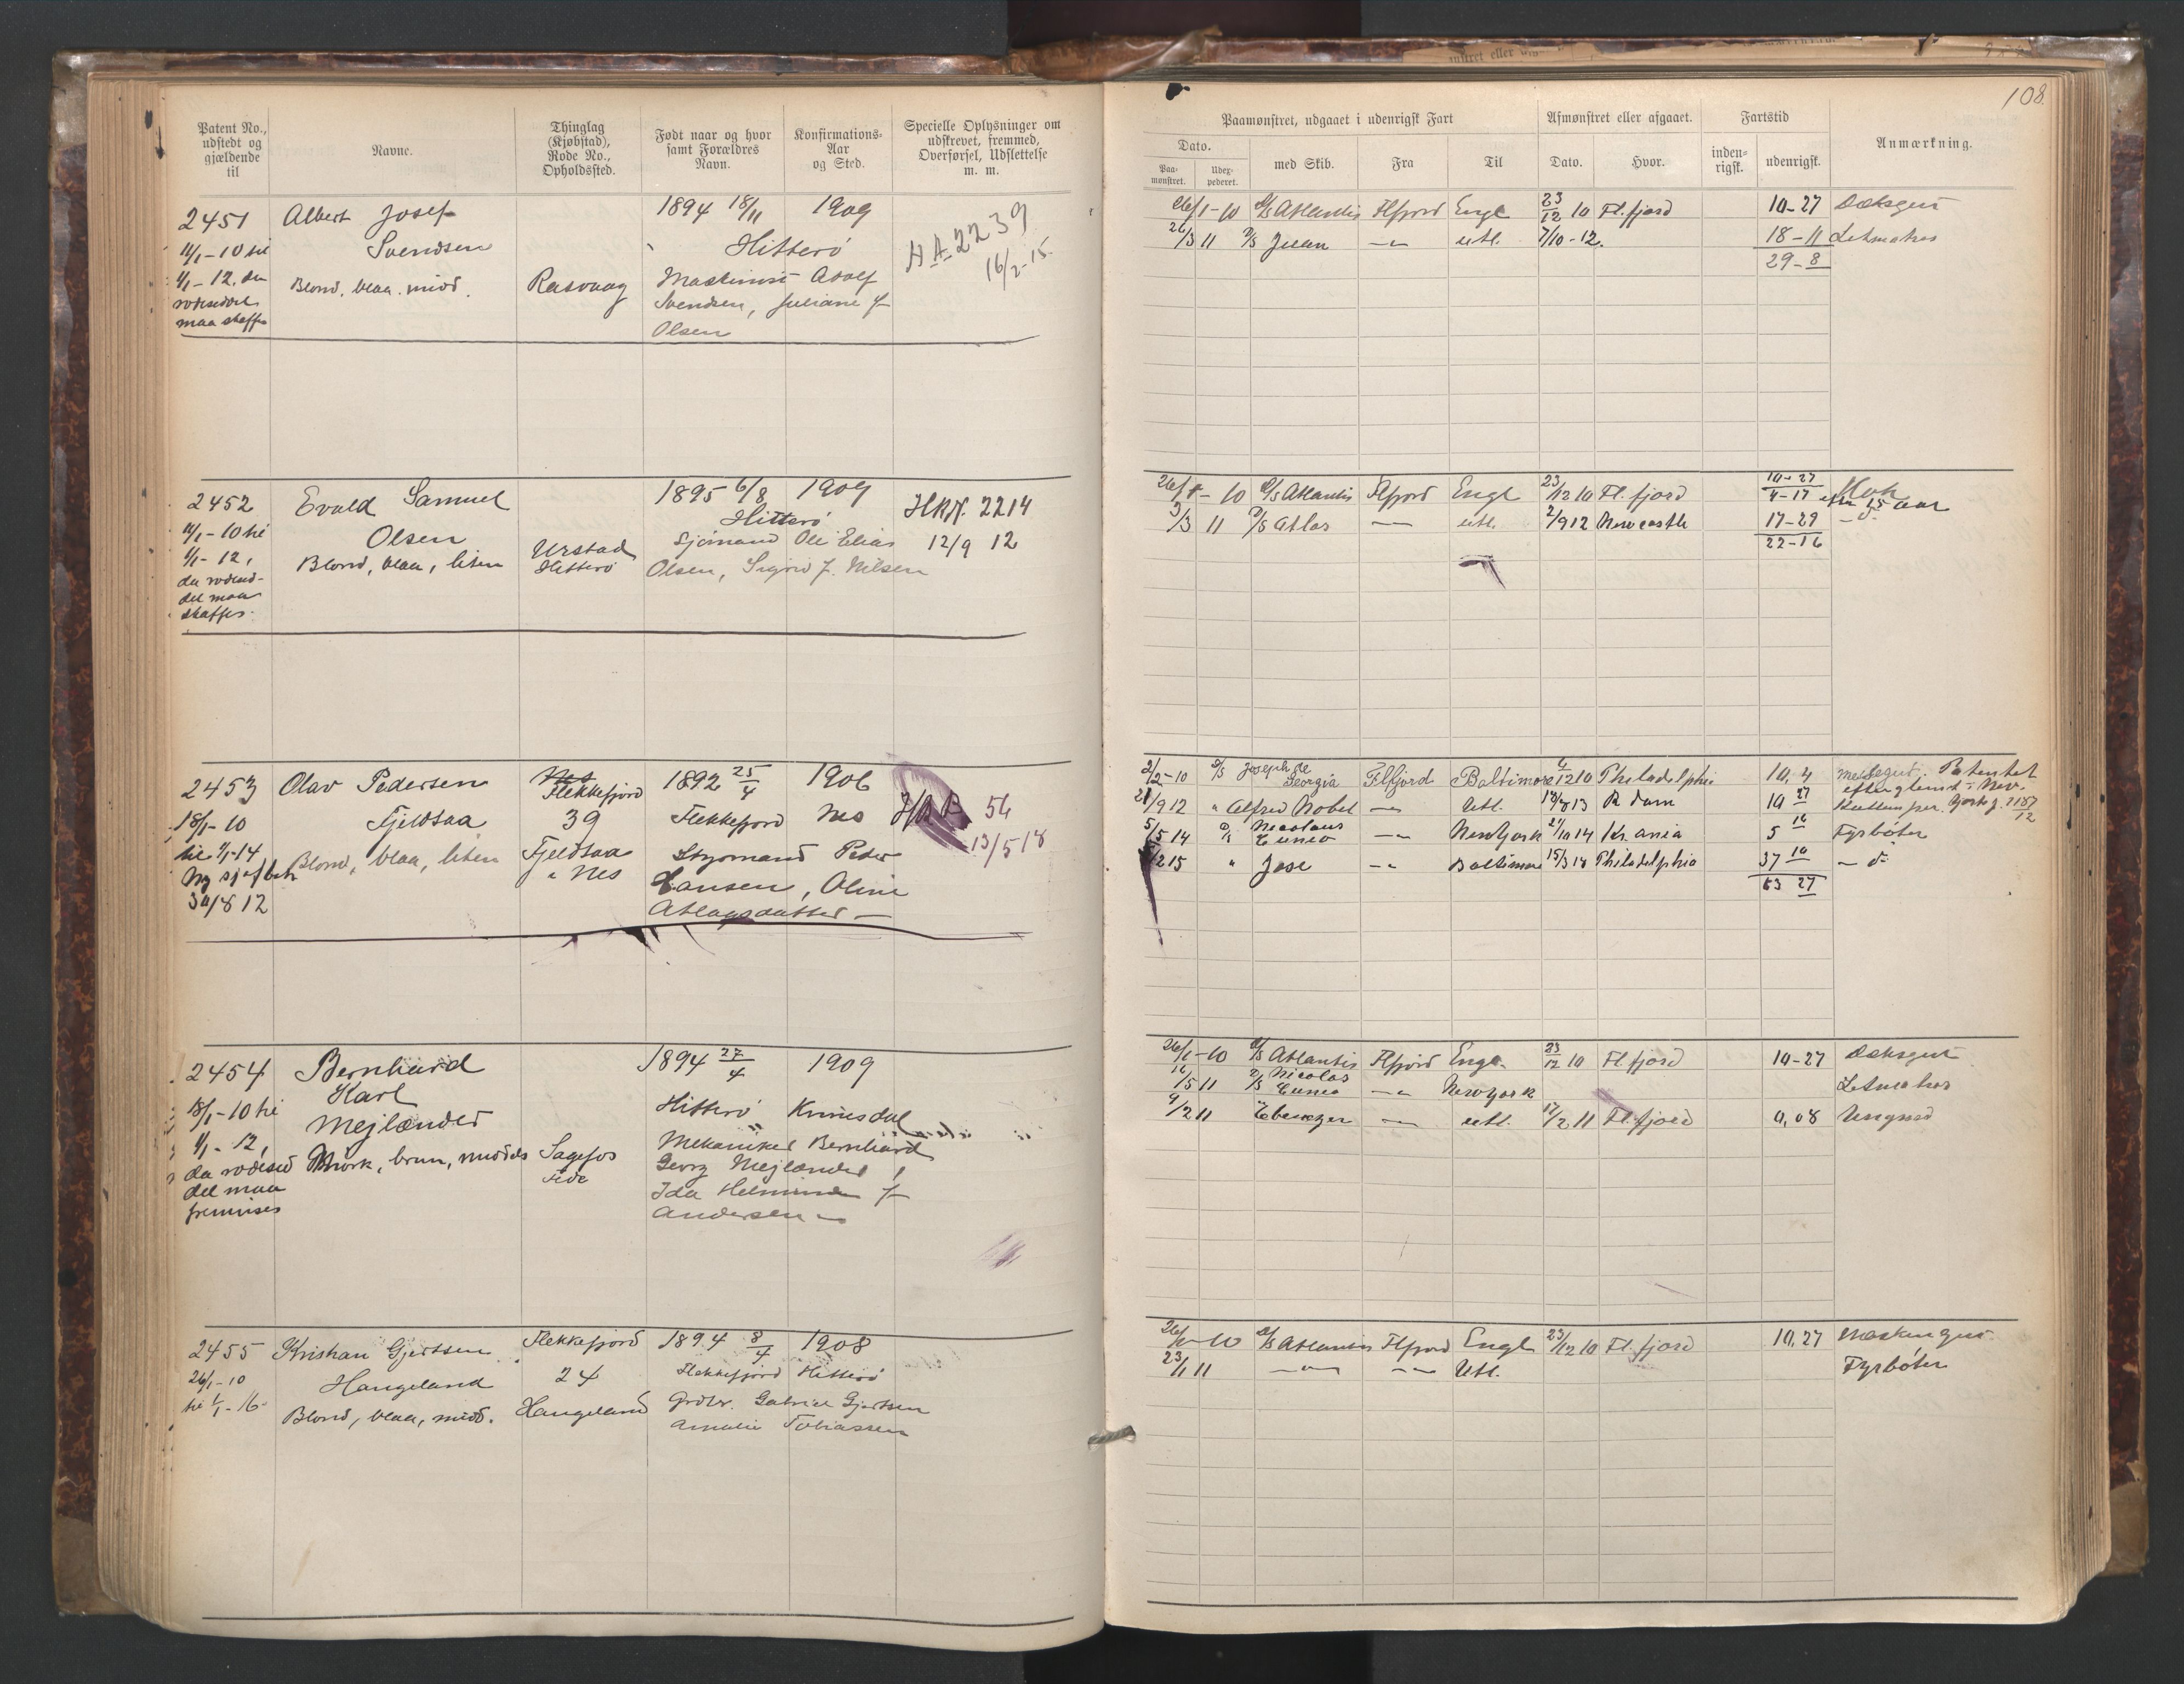 108
Patent No., udstedt og gjældende til
Navne.
Thinglag (Kjøbstad), Rode No., Opholdssted.
Født naar og hvor samt Forældres Navn.
Konfirmations-Aar og Sted.
Specielle Oplysninger om udskrevet, fremmed, Overførsel, Udslettelse m. m.
Paamønstret, udgaaet i udenrigsk Fart
Afmønstret eller afgaaet.
Fartstid
Anmærkning.
Dato.
Paa-mønstret.
Udex-pederet.
med Skib.
Fra
Til
Dato.
Hvor.
inden-rigsk.
udenrigsk.
2451 Albert Josef 1894 18/11 1909
11/1-10 til Svendsen Hitterø
1/1-12, da Blond, blaa, mid. Rasvaag Maskinist Adolf
rodeseddel Svendsen, Juliane f.
maa skaffes Olsen
HA 2239
16/2-15
26/1-10 D/S Atlantis Flfjord Engl 23/12 10 Fl.fjord 10-27 Dæksgut
26/3 11 D/S Juan -"- utl. 7/10-12. 18-11 Letmatros
29-8
2452 Evald Samuel 1895 6/8 1909 HRN. 2214
11/1-10 til Olsen Hitterø 12/9 12
1/1-12, Blond, blaa, liten Urstad Sjømand Ole Elias
da rodesed- Hitterø Olsen, Sigrid f. Nilsen
del maa
skaffes.
26/1-10 D/S Atlantis Flfjord Engl 23/12 10 Fl.fjord 10-27 Kok
4-17 efter 15 aar
3/3 11 D/S Atlas -"- utl. 2/9 12 Newcastle 17-29 -d-
22-16
2453 Olav Pedersen Nes Flekkefjord 1892 25/4 1906
18/1-10 Fjeldsaa 39 Flekkefjord Nes 54
til 1/1-14 Blond, blaa, liten Fjeldsaa Styrmand Peder 13/5 18
Ny sjøfbok i Nes Hansen, Oline
30/8 12 Atlagsdatter
2/2-10 D/S Joseph de Georgia Flfjord Baltimore 6/12 10 Philadelphia 10, 4 Patentet
21/9 12 " Alfred Nobel -"- Utl. R dam 10 27
5/5 14 D/S Nicolaus Cuneo -"- New York 21/10 14 Kr.ania 5 16 Fyrbøter
" Jose -"- Baltimore 15/3 18 Philadelphia 37 10 -d-
63 27
2454 Bernhard 1894 27/4 1909
18/1-10 til Karl Hitterø Kvinesdal
1/1-12, Mejlænder Mekaniker Bernhard
da rodesed Mørk, brun, middels Sagefos Georg Mejlænder,
del maa Fede Ida Helminda f.
fremvises Andersen
26/1-10 D/S Atlantis Flfjord Engl. 23/12 10 Fl.fjord 10-27 Dæksgut
16/5 11 D/S Nicolas Cuneo -"- New York Letmatros
9/2 11 " Ebenezer -"- utl. 17/2 11 Fl.fjord 0,08 Ungmd
2455 Kristian Gjertsen Flekkefjord 1894 8/4 1908
26/1-10 Hangeland 24 Flekkefjord Hitterø
til 1/1-16 Blond, blaa, midd. Hangeland Grdbr. Gabriel Gjertsen
Amalie Tobiassen
26/1-10 D/S Atlantis Flfjord Engl 23/12 10 Fl.fjord 10,27 Maskingut
23/1 11 -"- -"- Utl. Fyrbøter